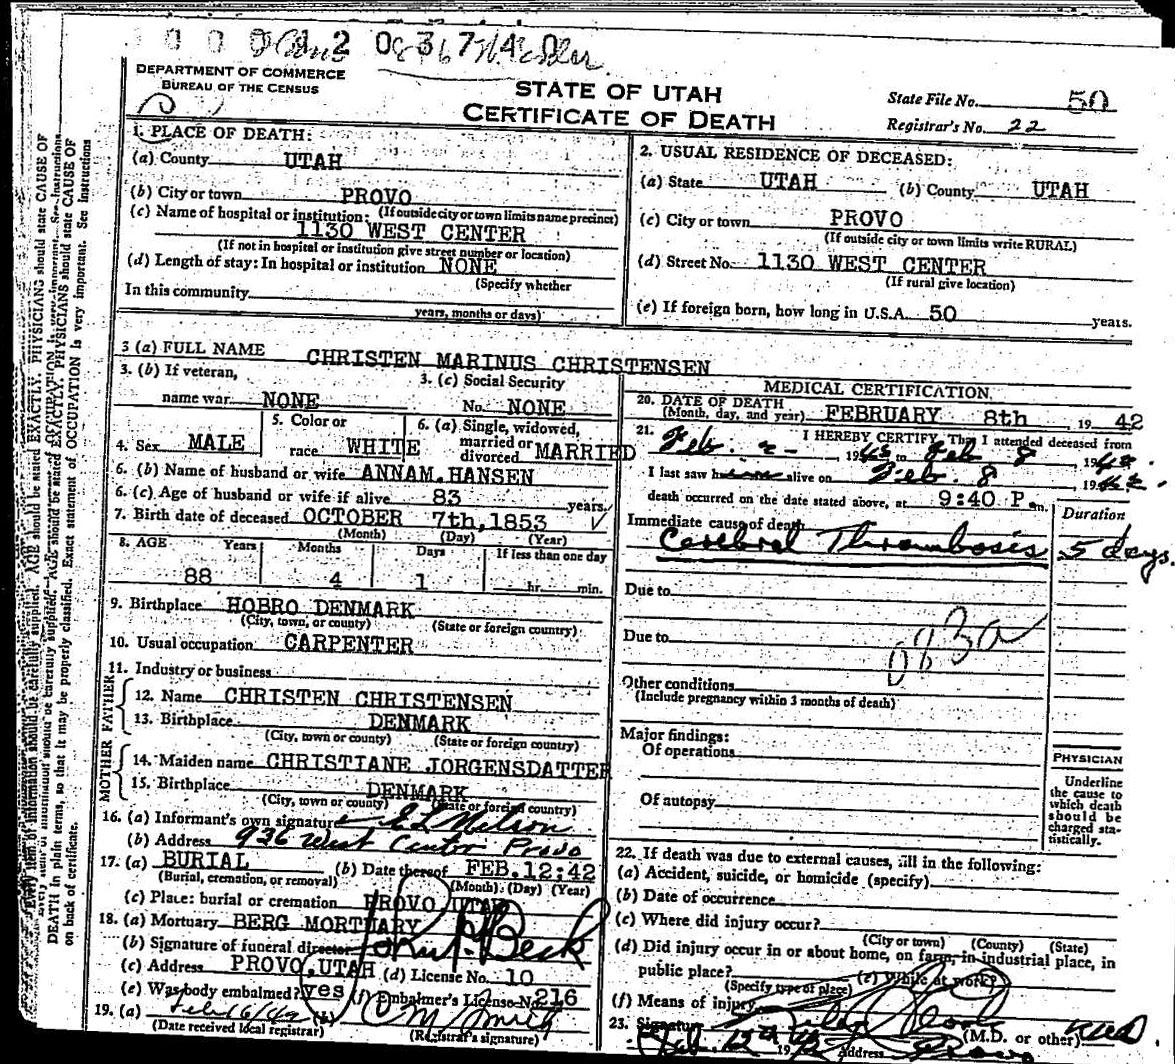 DEPARTMENT OF COMMERCE
BUREAU OF THE CENSUS
STATE OF UTAH
CERTIFICATE OF DEATH
State File No. 50
Registrar's No. 22
1. PLACE OF DEATH:
(a) County UTAH
(b) City or town PROVO
(c) Name of hospital or institution: (If outside city or town limits name precinct)
1130 WEST CENTER
(If not in hospital or institution give street number or location)
(d) Length of stay: In hospital or institution NONE
(Specify whether
In this community
years, months or days)
2. USUAL RESIDENCE OF DECEASED:
(a) State UTAH (b) County UTAH
(c) City or town PROVO
(If outside city or town limits write RURAL)
(d) Street No. 1130 WEST CENTER
(If rural give location)
(e) If foreign born, how long in U.S.A. 50 years.
3 (a) FULL NAME CHRISTEN MARINUS CHRISTENSEN
3. (b) If veteran,
name war NONE
3. (c) Social Security
No. NONE
4. Sex MALE
5. Color or
race WHITE
6. (a) Single, widowed,
married or
divorced MARRIED
6. (b) Name of husband or wife ANNAM.HANSEN
6. (c) Age of husband or wife if alive 83 years.
7. Birth date of deceased OCTOBER 7th,1853
(Month) (Day) (Year)
8. AGE Years Months Days If less than one day
88 4 1 hr. min.
9. Birthplace HOBRO DENMARK
(City, town, or county) (State or foreign country)
10. Usual occupation CARPENTER
11. Industry or business
FATHER
12. Name CHRISTEN CHRISTENSEN
13. Birthplace DENMARK
(City, town or county) (State or foreign country)
MOTHER
14. Maiden name CHRISTIANE JORGENSDATTER
15. Birthplace DENMARK
(City, town or county) (State or foreign country)
16. (a) Informant's own signature
(b) Address 936 West Center Provo
17. (a) BURIAL (b) Date thereof FEB.12:42
(Burial, cremation, or removal) (Month) (Day) (Year)
(c) Place: burial or cremation PROVO UTAH
18. (a) Mortuary BERG MORTUARY
(b) Signature of funeral director
(c) Address PROVO,UTAH (d) License No. 10
(e) Was body embalmed? yes (f) Embalmer's License No. 216
19. (a)
(Date received local registrar) (Registrar's signature)
MEDICAL CERTIFICATION
20. DATE OF DEATH
(Month, day, and year) FEBRUARY 8th, 1942
21. I HEREBY CERTIFY, That I attended deceased from
Feb. 2 - 1942 to Feb 8, 1942
I last saw him alive on Feb. 8, 1942.
death occurred on the date stated above, at 9:40 P.m.
Immediate cause of death
Duration
Cerebral Thrombosis 5 days.
Due to
Due to
083a
Other conditions
(Include pregnancy within 3 months of death)
Major findings:
Of operations
Of autopsy
PHYSICIAN
Underline
the cause to
which death
should be
charged sta-
tistically.
22. If death was due to external causes, fill in the following:
(a) Accident, suicide, or homicide (specify)
(b) Date of occurrence
(c) Where did injury occur?
(City or town) (County) (State)
(d) Did injury occur in or about home, on farm, in industrial place, in
public place? (e) While at work?
(Specify type of place)
(f) Means of injury
23. Signature
(M.D. or other)
Feb. 12th 1942 Address Provo
DEATH in plain terms, so that it may be properly classified. Exact statement of OCCUPATION is very important. See Instructions
on back of certificate.